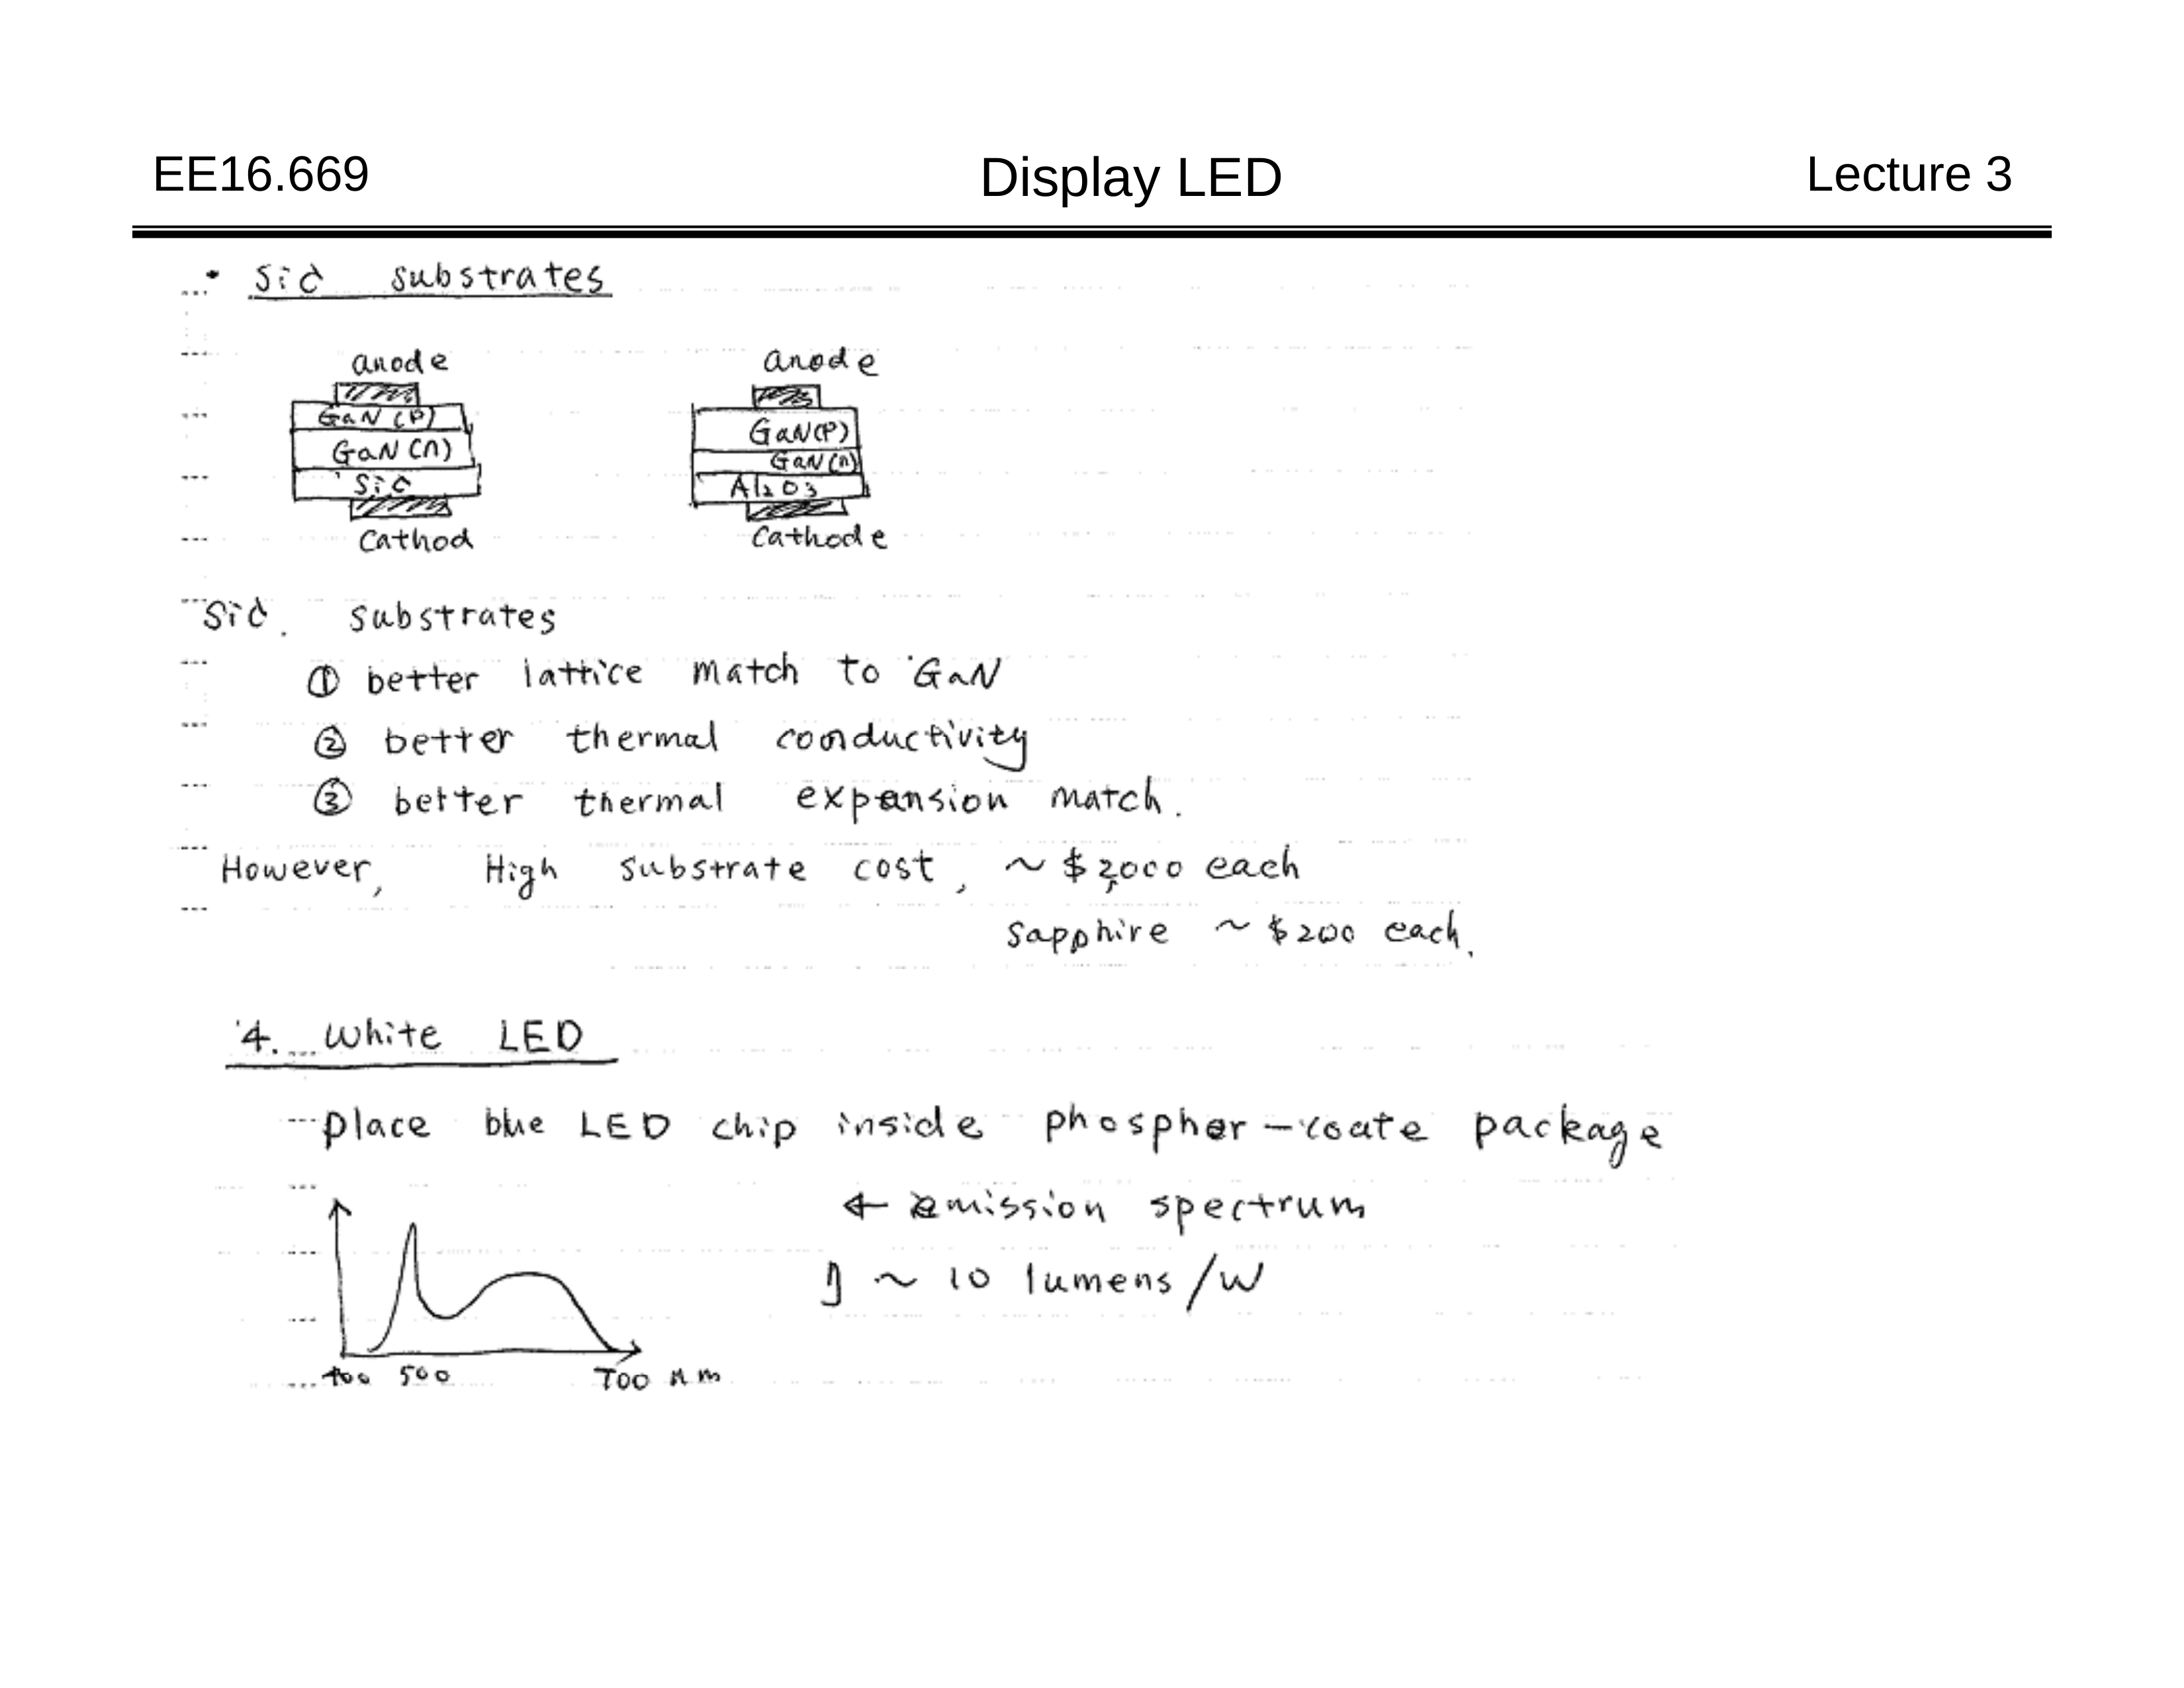 EE16.669 Display LED Lecture 3
• SiC substrates
anode anode
GaN (P) GaN(P)
GaN (n) GaN (n)
SiC Al2O3
Cathod Cathode
SiC. substrates
① better lattice match to GaN
② better thermal conductivity
③ better thermal expansion match.
However, High substrate cost, ~ $2,000 each
sapphire ~ $200 each.
4. White LED
place blue LED chip inside phosphor-coate package
← emission spectrum
~ 10 lumens/W
400 500 700 nm